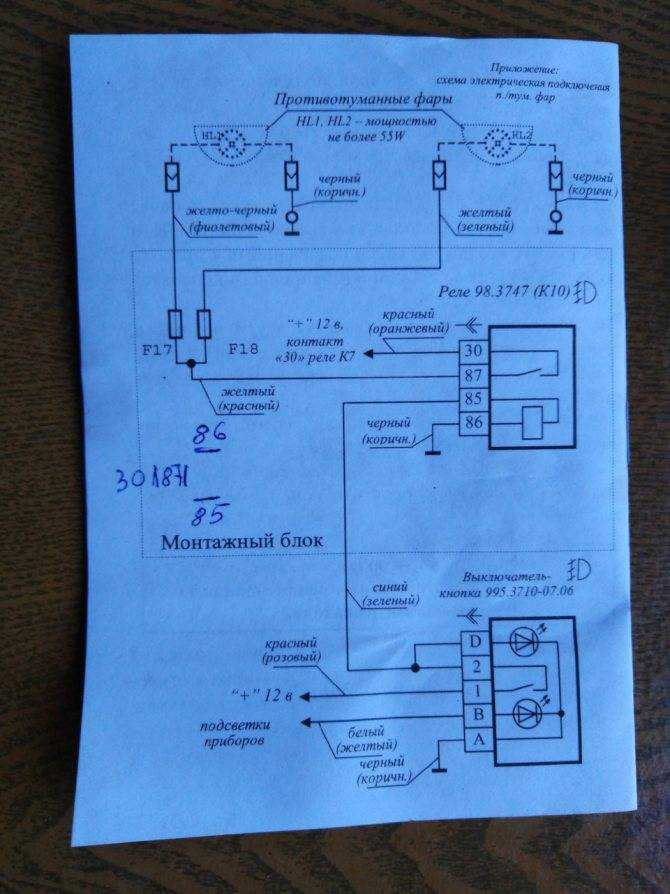 Приложение:
схема электрическая подключения
п./тум. фар
Противотуманные фары
HL1, HL2 – мощностью
не более 55W
HL1
HL2
черный
(коричн.)
черный
(коричн.)
желто-черный
(фиолетовый)
желтый
(зеленый)
Реле 98.3747 (К10)
F17
F18
“+” 12 в,
контакт
«30» реле К7
красный
(оранжевый)
30
87
85
86
желтый
(красный)
черный
(коричн.)
86
30 87
85
Монтажный блок
синий
(зеленый)
Выключатель-
кнопка 995.3710-07.06
красный
(розовый)
D
2
1
B
A
“+” 12 в
подсветки
приборов
белый
(желтый)
черный
(коричн.)